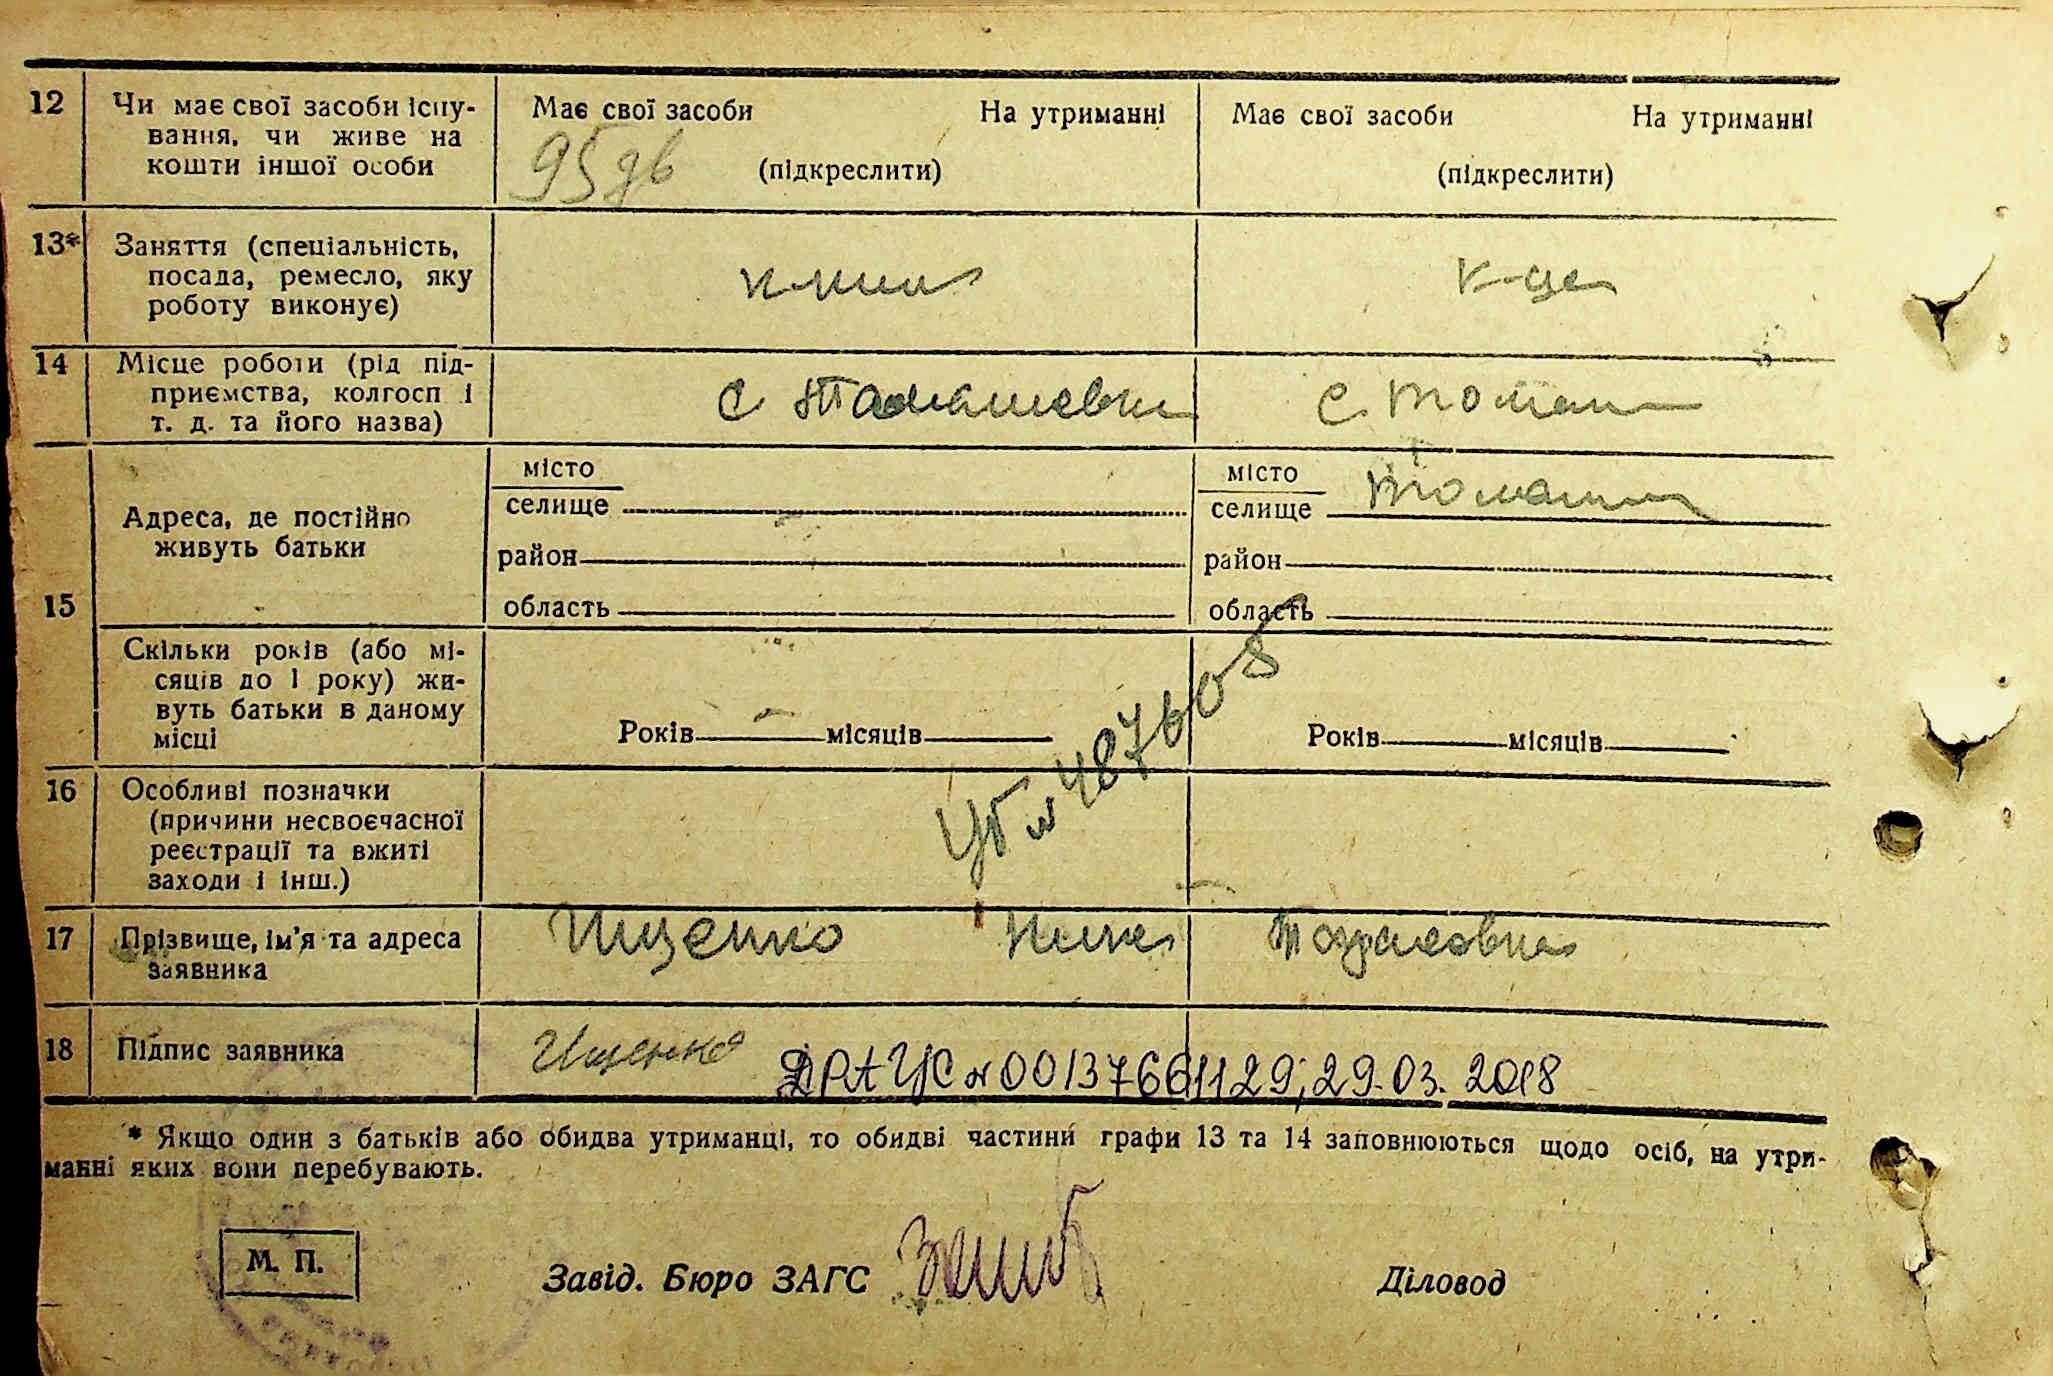 12 Чи має свої засоби існу-
вання, чи живе на
кошти іншої особи
Має свої засоби На утриманні
95дв (підкреслити)
Має свої засоби На утриманні
(підкреслити)
13* Заняття (спеціальність,
посада, ремесло, яку
роботу виконує)
к-це
14 Місце роботи (рід під-
приємства, колгосп і
т. д. та його назва)
с Томашевка
с. Томаш
15
Адреса, де постійно
живуть батьки
місто
селище
район
область
місто
селище Томаш
район
область
Скільки років (або мі-
сяців до 1 року) жи-
вуть батьки в даному
місці
Років місяців
Років місяців
16 Особливі позначки
(причини несвоєчасної
реєстрації та вжиті
заходи і інш.)
487608
17 Прізвище, ім'я та адреса
заявника
Ищенко Нина
18 Підпис заявника
Ищенко
ДРАЦС № 00137661129; 29.03.2018
* Якщо один з батьків або обидва утриманці, то обидві частини графи 13 та 14 заповнюються щодо осіб, на утри-
манні яких вони перебувають.
М. П.
Завід. Бюро ЗАГС
Діловод